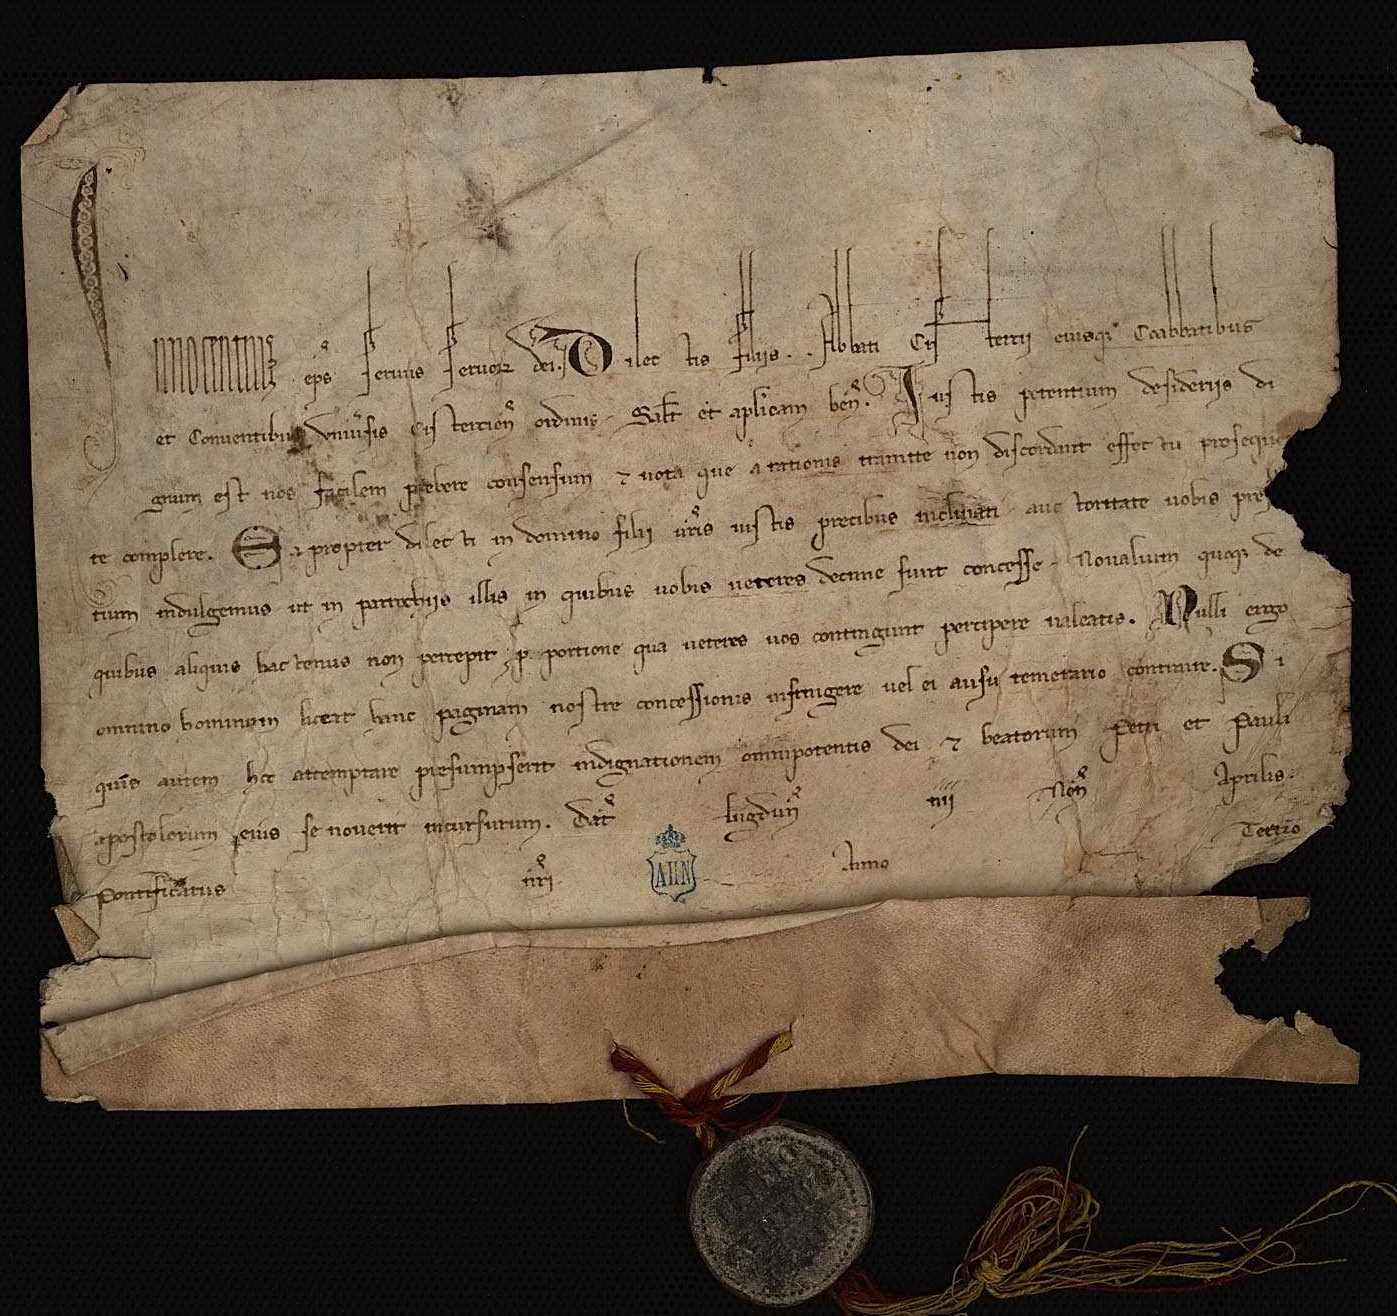 INNOCENTIUS ep̄s servus servoꝝ dei. Dilectis filiis .. Abbati Cistertii eiusqꝫ Coabbatibus
et Conventibus universis Cistercien̄ ordinis. Salt̄ et aplicam ben̄. Iustis petentium desideriis di
gnum est nos facilem prebere consensum ⁊ vota que a rationis tramite non discordant effectu prosequen
te complere. Ea propter dilecti in domino filii vr̄is iustis precibus inclinati auctoritate vobis presen
tium indulgemus ut in parrochiis illis in quibus vobis veteres decime sunt concesse. Novalium quoqꝫ de
quibus aliquis hactenus non percepit, ꝓ portione qua veteres vos contingunt percipere valeatis. Nulli ergo
omnino hominum liceat hanc paginam nostre concessionis infringere vel ei ausu temerario contraire. Si
quis autem hoc attemptare presumpserit indignationem omnipotentis dei ⁊ beatorum Petri et Pauli
apostolorum eius se noverit incursurum. Dat̄ Lugdun̄ iiii Non̄ Aprilis.
Pontificatus nr̄i Anno Tertio
AHN